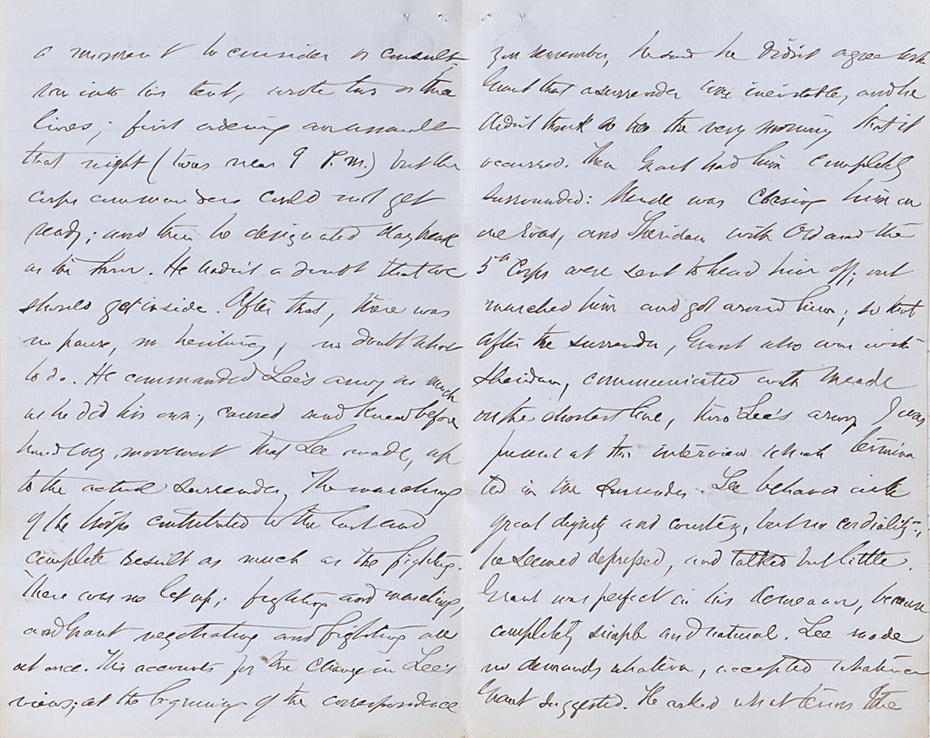 a moment to consider or consult
ran into his tent, wrote two or three
lines; first ordering an assault
that night (twas near 9 P.M.) but the
corps commanders could not get
ready; and then he designated daybreak
as the hour. He hadn't a doubt that we
should get inside. After that, there was
no pause, no hesitancy, no doubt what
to do. He commanded Lee's army as much
as he did his own; caused and knew before
hand every movement that Lee made, up
to the actual surrender. The marching
of the troops contributed to the last and
complete result as much as the fighting.
There was no let up; fighting and marching,
and Grant negotiating and fighting all
at once. This accounts for the change in Lee's
views; at the beginning of the correspondence
you remember, he said he didn't agree with
Grant that a surrender was inevitable, and he
didn't think so till the very morning that it
occurred. Then Grant had him completely
surrounded: Meade was chasing him on
one road, and Sheridan with Ord and the
5th Corps were sent to head him off; out
marched him and got around him; so that
after the surrender, Grant who was with
Sheridan, communicated with Meade
on the shortest line, thro' Lee's army. I was
present at the interview which termina
ted in the surrender. Lee behaved with
great dignity and courtesy, but no cordiality;
he seemed depressed, and talked but little.
Grant was perfect in his demeanor, because
completely simple and natural. Lee made
no demands whatever, accepted whatever
Grant suggested. He asked what terms the